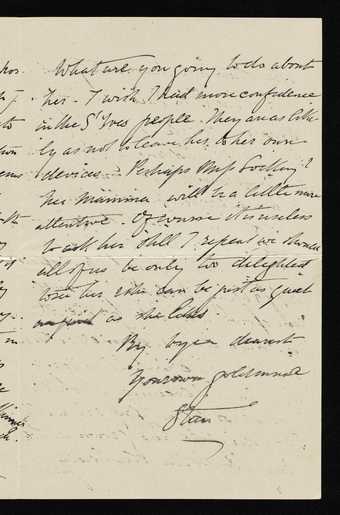 What are you going to do about
her - I wish I had more confidence
in the St Ives people. They are as like-
ly as not to leave her to her own
devices - Perhaps Miss Hocking?
her Mamma will be a little more
attentive. Of course it is useless
to ask her still I repeat we should
all of us be only too delighted
to see her & she can be just as quiet
as she likes.
By bye dearest
Your own
Stan